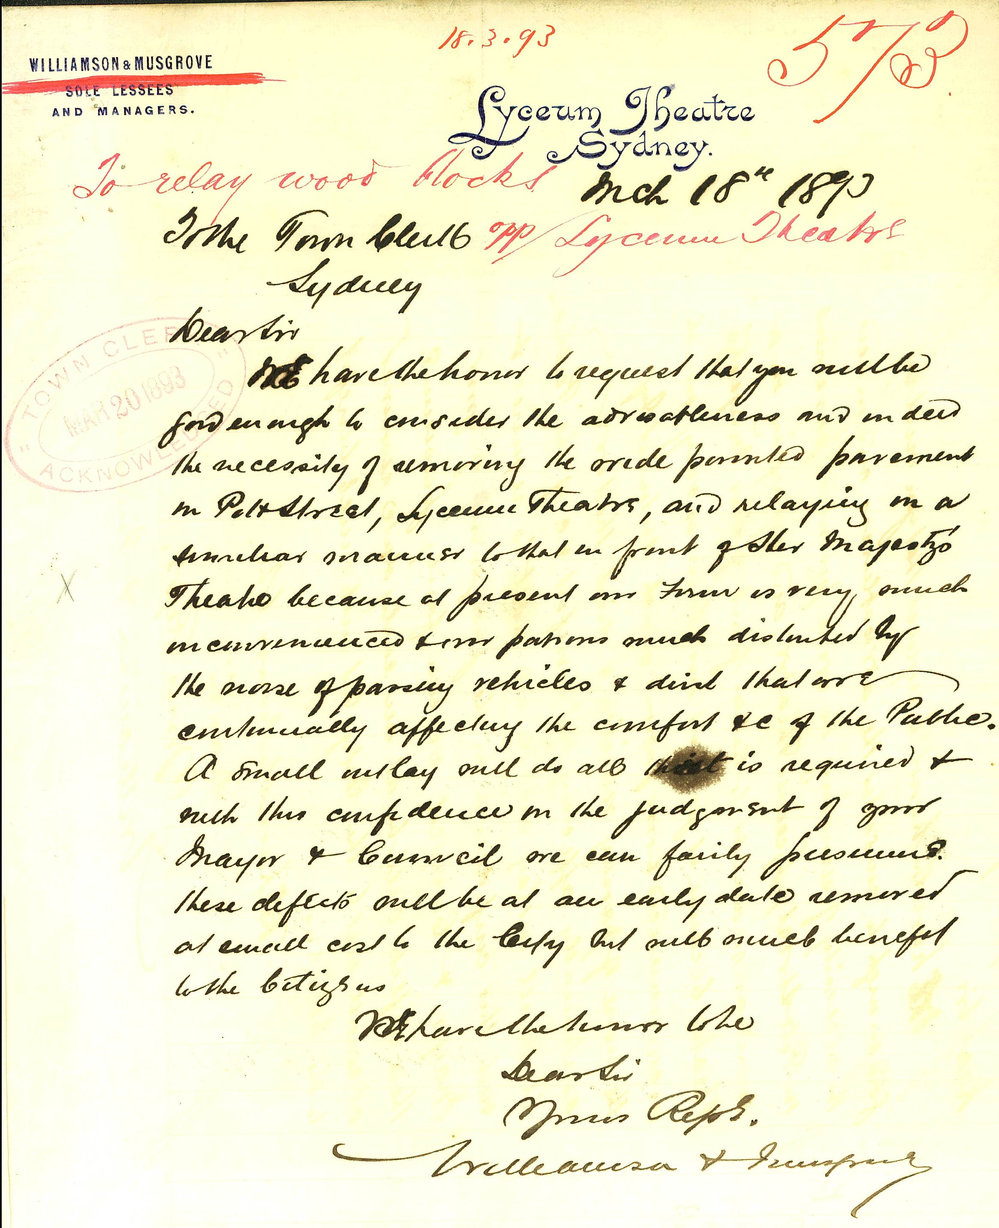 18.3.93
573
WILLIAMSON & MUSGROVE
SOLE LESSEES
AND MANAGERS.
Lyceum Theatre
Sydney.
To relay wood blocks
Mch 18th 1893
To the Town Clerk
opp/ Lyceum Theatre
Sydney
Dear Sir
TOWN CLERK
MAR 20 1893
ACKNOWLEDGED
WE have the honor to request that you will be
good enough to consider the adviseableness and indeed
the necessity of removing the wide pavement
in Pitt Street, Lyceum Theatre, and relaying in a
similar manner to that in front of Her Majestys
Theatre because at present our is very much
inconvenienced & our patrons much disturbed by
the noise of passing vehicles & dirt that are
continually affecting the comfort &c of the Public.
A small outlay will do all that is required &
with this confidence in the judgment of your
Mayor & Council we can fairly presume
these defects will be at an early date removed
at small cost to the City but with much benefit
to the Citizens
WE have the honor to be
Dear Sir
Yours Resp.
Williamson & Musgrove